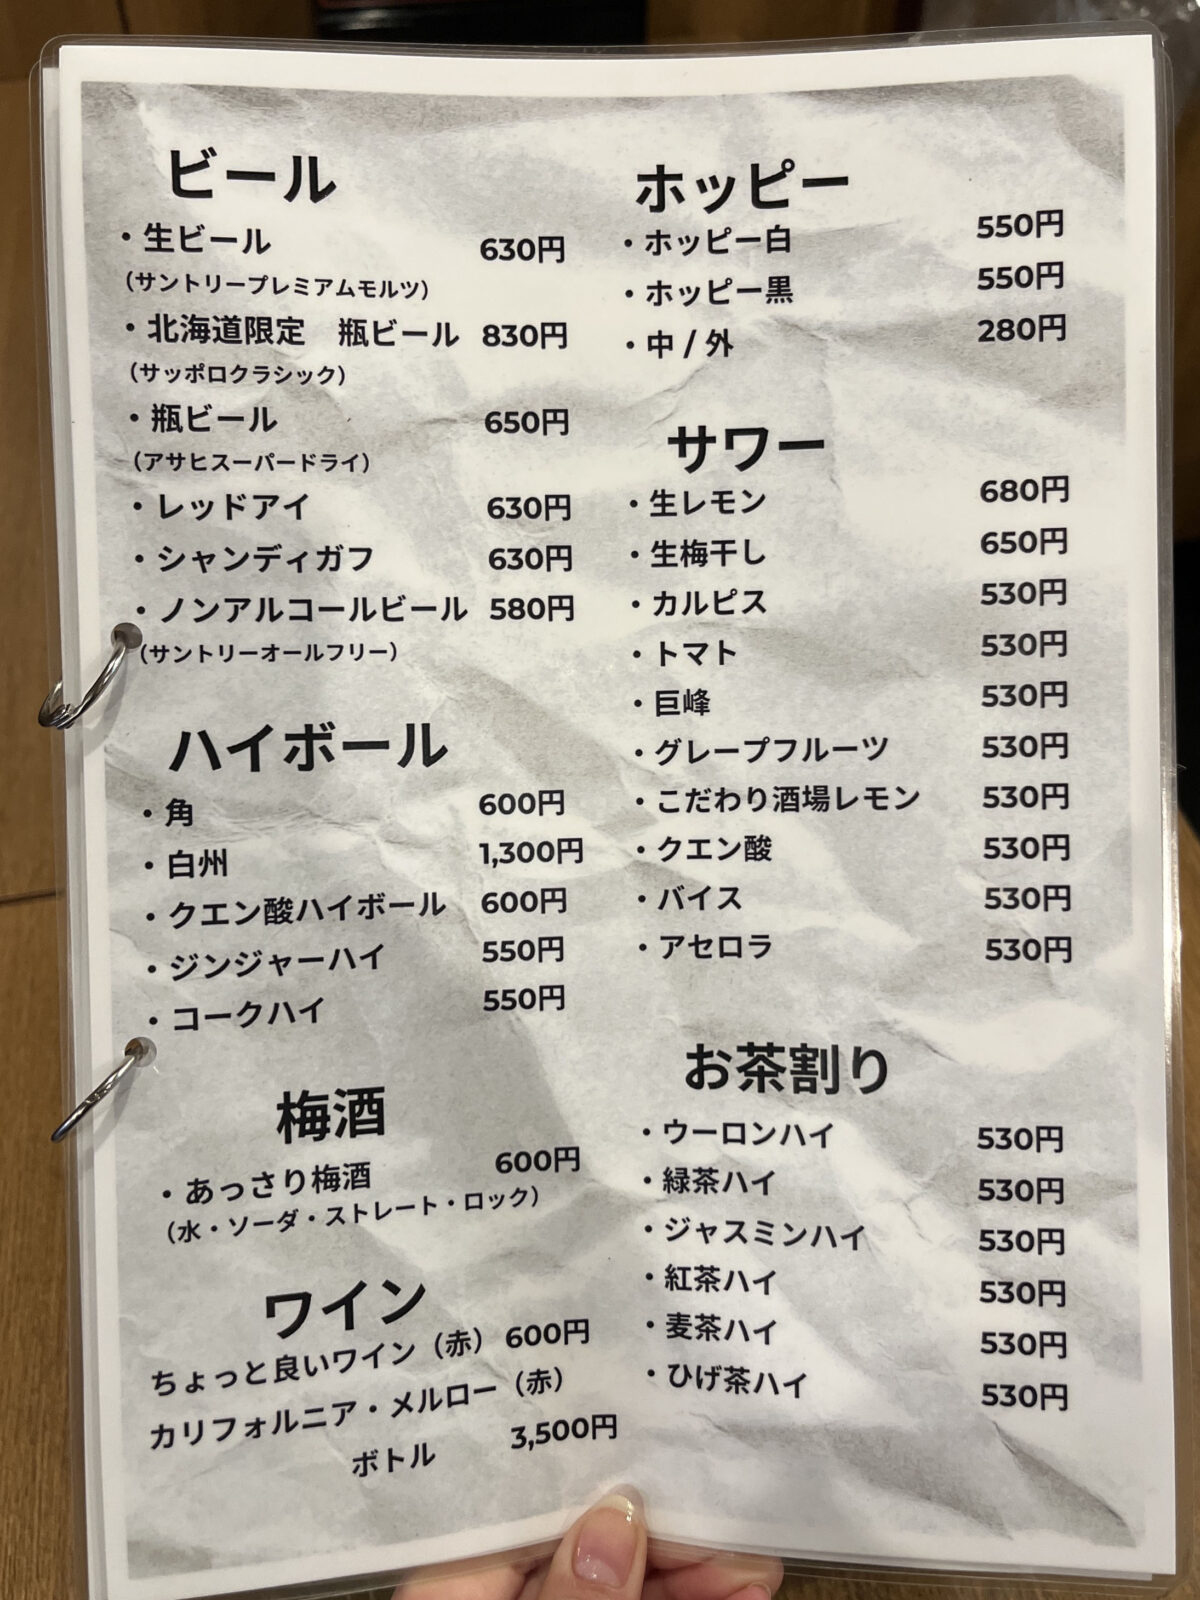 ビール
・生ビール 630円
（サントリープレミアムモルツ）
・北海道限定 瓶ビール 830円
（サッポロクラシック）
・瓶ビール 650円
（アサヒスーパードライ）
・レッドアイ 630円
・シャンディガフ 630円
・ノンアルコールビール 580円
（サントリーオールフリー）
ハイボール
・角 600円
・白州 1,300円
・クエン酸ハイボール 600円
・ジンジャーハイ 550円
・コークハイ 550円
梅酒
・あっさり梅酒 600円
（水・ソーダ・ストレート・ロック）
ワイン
ちょっと良いワイン（赤） 600円
カリフォルニア・メルロー（赤）
ボトル 3,500円
ホッピー
・ホッピー白 550円
・ホッピー黒 550円
・中 / 外 280円
サワー
・生レモン 680円
・生梅干し 650円
・カルピス 530円
・トマト 530円
・巨峰 530円
・グレープフルーツ 530円
・こだわり酒場レモン 530円
・クエン酸 530円
・バイス 530円
・アセロラ 530円
お茶割り
・ウーロンハイ 530円
・緑茶ハイ 530円
・ジャスミンハイ 530円
・紅茶ハイ 530円
・麦茶ハイ 530円
・ひげ茶ハイ 530円